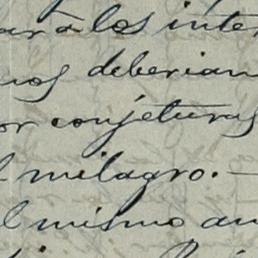 ará los inter
nos deberian
or conjeturas
l milagro. —
l mismo au